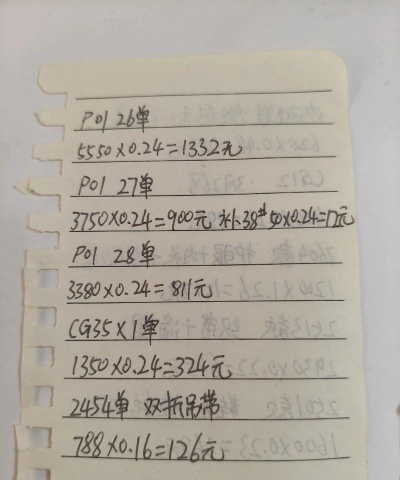 P01 26单
5550×0.24=1332元
P01 27单
3750×0.24=900元 补38# 50×0.24=12元
P01 28单
3380×0.24=811元
CG35×1单
1350×0.24=324元
2454单 双折吊带
788×0.16=126元